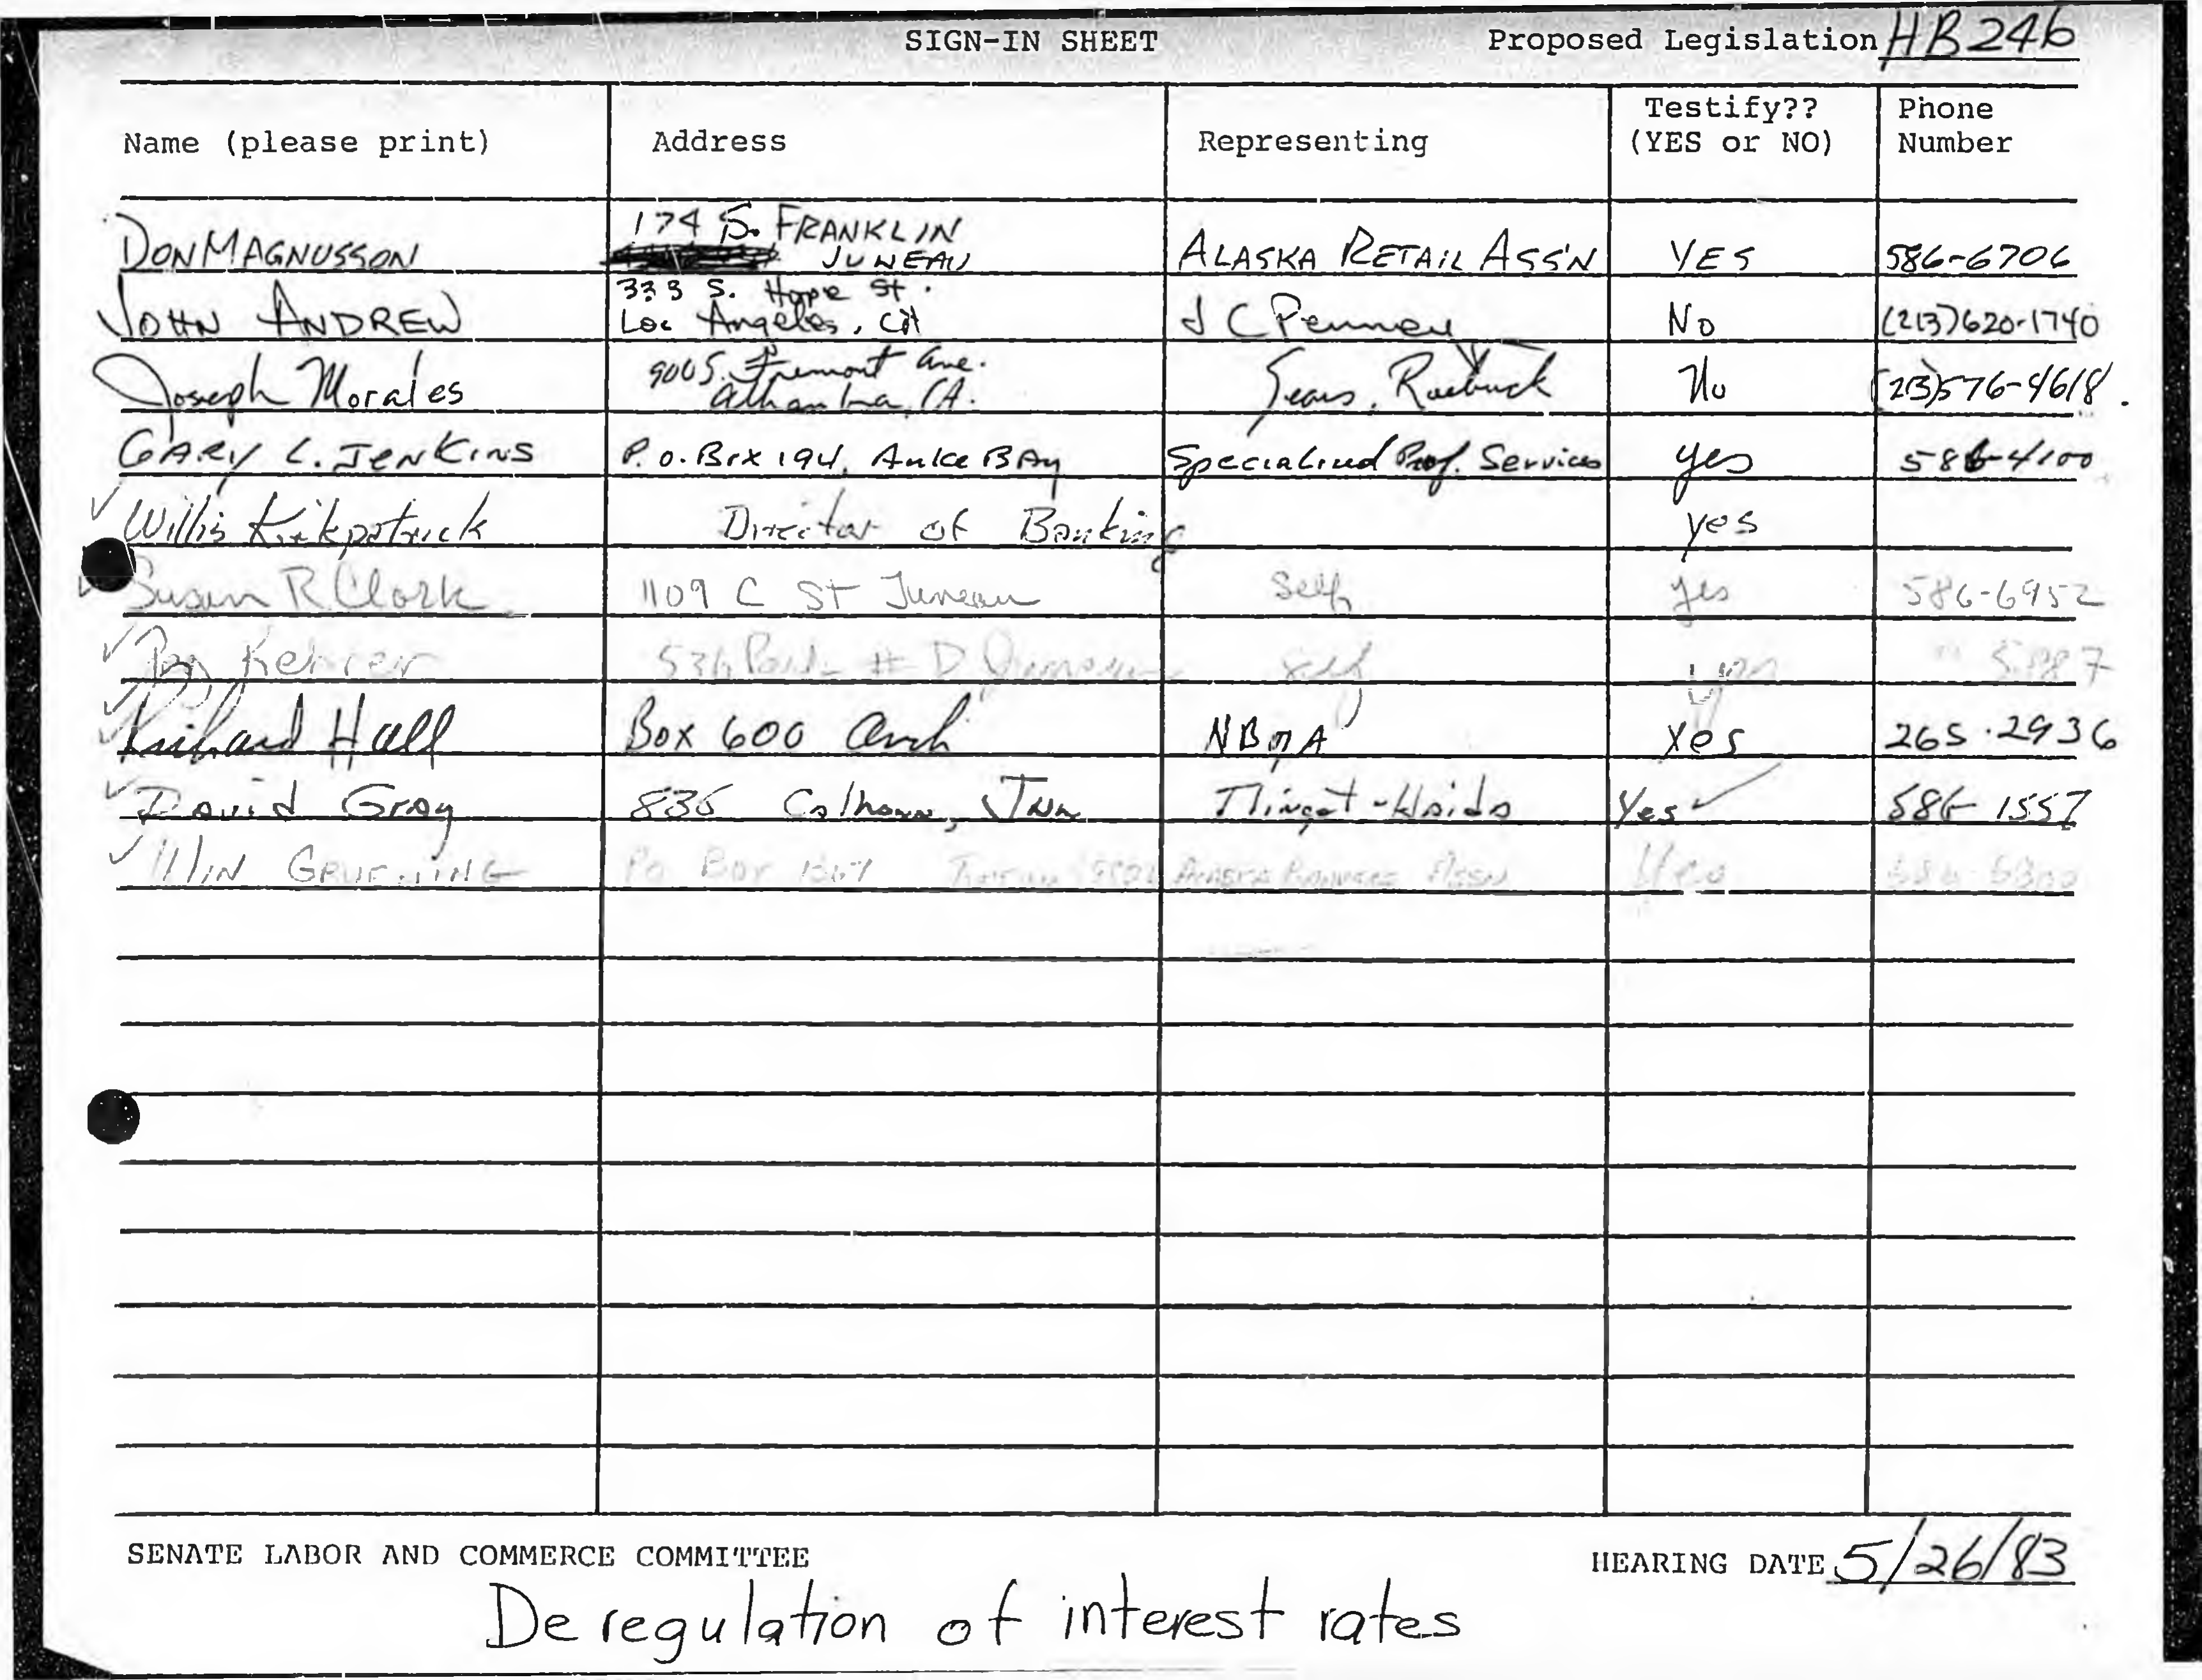 SIGN-IN SHEET Proposed Legislation HB 246
Name (please print) Address Representing Testify?? (YES or NO) Phone Number
174 S. FRANKLIN
DON MAGNUSSON JUNEAU ALASKA RETAIL ASS'N YES 586-6706
333 S. Hope St.
JOHN ANDREW Los Angeles, CA J C Penney No (213)620-1740
900 S. Fremont Ave.
Joseph Morales Alhambra, CA. Sears, Roebuck No (213)576-4618.
GARY L. JENKINS P.O. Box 194, Auke BAy Specialized Prof. Services yes 586-4100
✓ Willis Kirkpatrick Director of Banking yes
✓ Susan R Clark 1109 C St Juneau Self yes 586-6952
✓ Kehrer 536 Park # D Juneau self yes " 5887
✓ Richard Hall Box 600 Anch NBMA Yes 265-2936
✓ David Gray 835 Calhoun, Jnu Tlingit-Haida Yes ✓ 586-1557
✓ WIN GRUENING PO Box Juneau ALASKA BANKERS ASSN Yes
SENATE LABOR AND COMMERCE COMMITTEE HEARING DATE 5/26/83
Deregulation of interest rates